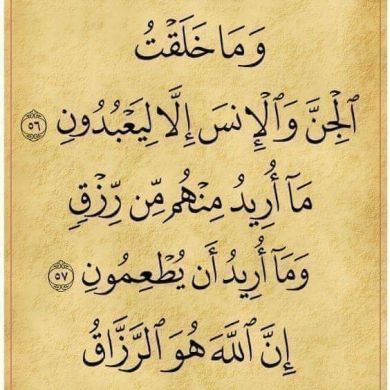 وَمَا خَلَقْتُ
ٱلْجِنَّ وَٱلْإِنسَ إِلَّا لِيَعْبُدُونِ ٥٦
مَآ أُرِيدُ مِنْهُم مِّن رِّزْقٍ
وَمَآ أُرِيدُ أَن يُطْعِمُونِ ٥٧
إِنَّ ٱللَّهَ هُوَ ٱلرَّزَّاقُ